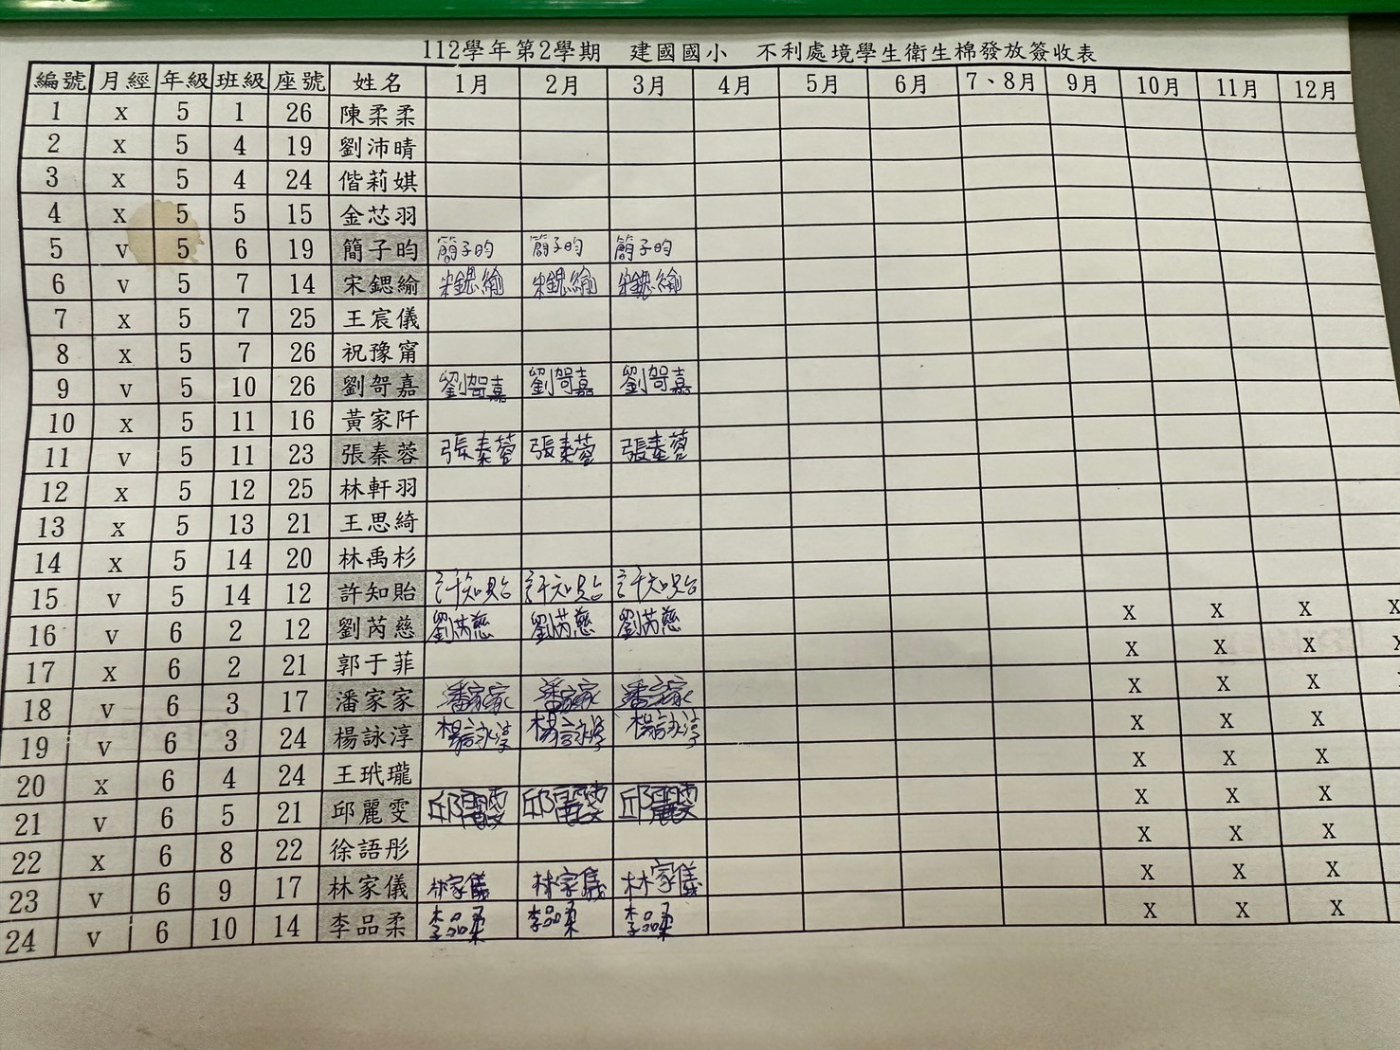 112學年第2學期 建國國小 不利處境學生衛生棉發放簽收表
編號 月經 年級 班級 座號 姓名 1月 2月 3月 4月 5月 6月 7、8月 9月 10月 11月 12月
1 x 5 1 26 陳柔柔
2 x 5 4 19 劉沛晴
3 x 5 4 24 偕莉娸
4 x 5 5 15 金芯羽
5 v 5 6 19 簡子昀 簡子昀 簡子昀 簡子昀
6 v 5 7 14 宋鍶綸 宋鍶綸 宋鍶綸 宋鍶綸
7 x 5 7 25 王宸儀
8 x 5 7 26 祝豫甯
9 v 5 10 26 劉哿嘉 劉哿嘉 劉哿嘉 劉哿嘉
10 x 5 11 16 黃家阡
11 v 5 11 23 張秦蓉 張秦蓉 張秦蓉 張秦蓉
12 x 5 12 25 林軒羽
13 x 5 13 21 王思綺
14 x 5 14 20 林禹杉
15 v 5 14 12 許知貽 許知貽 許知貽 許知貽
16 v 6 2 12 劉芮慈 劉芮慈 劉芮慈 劉芮慈 x x x x
17 x 6 2 21 郭于菲 x x x x
18 v 6 3 17 潘家家 潘家家 潘家家 潘家家 x x x
19 v 6 3 24 楊詠淳 楊詠淳 楊詠淳 楊詠淳 x x x
20 x 6 4 24 王玳瓏 x x x
21 v 6 5 21 邱麗雯 邱麗雯 邱麗雯 邱麗雯 x x x
22 x 6 8 22 徐語彤 x x x
23 v 6 9 17 林家儀 林家儀 林家儀 林家儀 x x x
24 v 6 10 14 李品柔 李品柔 李品柔 李品柔 x x x